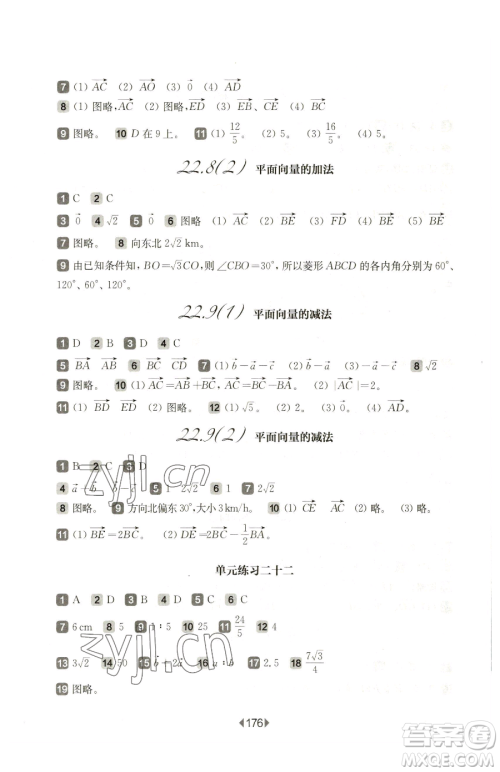 7 (1) $\overrightarrow{AC}$ (2) $\overrightarrow{AO}$ (3) $\vec{0}$ (4) $\overrightarrow{AD}$
8 (1) 图略,$\overrightarrow{AC}$ (2) 图略,$\overrightarrow{ED}$ (3) $\overrightarrow{EB}$、$\overrightarrow{CE}$ (4) $\overrightarrow{BC}$
9 图略。 10 D 在 9 上。 11 (1) $\frac{12}{5}$。 (2) 5。 (3) $\frac{16}{5}$。 (4) 5。
22.8(2) 平面向量的加法
1 C 2 C
3 $\vec{0}$ 4 $\sqrt{2}$ 5 $\vec{0}$ 6 图略 (1) $\overrightarrow{AC}$ (2) $\overrightarrow{BE}$ (3) $\overrightarrow{FD}$ (4) $\overrightarrow{BE}$ (5) $\overrightarrow{BE}$
7 图略。 8 向东北 $2\sqrt{2}$ km。
9 由已知条件知,$BO=\sqrt{3}CO$,则∠CBO=30°,所以菱形 ABCD 的各内角分别为 60°、
120°、60°、120°。
22.9(1) 平面向量的减法
1 D 2 B 3 D 4 C
5 $\overrightarrow{BA}$ $\overrightarrow{AB}$ 6 $\overrightarrow{BC}$ $\overrightarrow{BD}$ 7 (1) $\vec{b}-\vec{a}-\vec{c}$ (2) $\vec{b}-\vec{c}$ (3) $-\vec{a}-\vec{c}$ 8 $\sqrt{2}$
9 图略。 10 (1) $\overrightarrow{AC}=\overrightarrow{AB}+\overrightarrow{BC}$,$\overrightarrow{AC}=\overrightarrow{BC}-\overrightarrow{BA}$。 (2) $|\overrightarrow{AC}|=2$。
11 (1) $\overrightarrow{BD}$ $\overrightarrow{ED}$ (2) 图略。 12 (1) $\sqrt{5}$。 (2) 2。 (3) $\vec{0}$。 (4) $\overrightarrow{AD}$。
22.9(2) 平面向量的减法
1 B 2 C 3 D
4 5 1 $2\sqrt{2}$ 6 1 0 7 $2\sqrt{2}$
8 图略。 9 方向北偏东 30°,大小 3 km/h。 10 (1) $\overrightarrow{CE}$ $\overrightarrow{AC}$ (2) 略。 (3) 略。
11 (1) $\overrightarrow{BE}=2\overrightarrow{BC}$。 (2) $\overrightarrow{DE}=2\overrightarrow{BC}-\frac{1}{2}\overrightarrow{BA}$。
单元练习二十二
1 A 2 D 3 C 4 D 5 C 6 C
7 6 cm 8 5 9 1∶5 10 25 11 $\frac{24}{5}$ 12 4
13 $3\sqrt{2}$ 14 50 15 16 17 2.5 18 $\frac{7\sqrt{3}}{4}$
19 图略。
176
zyjl.cn
zyjl.cn
答案圈
MXQE.COM